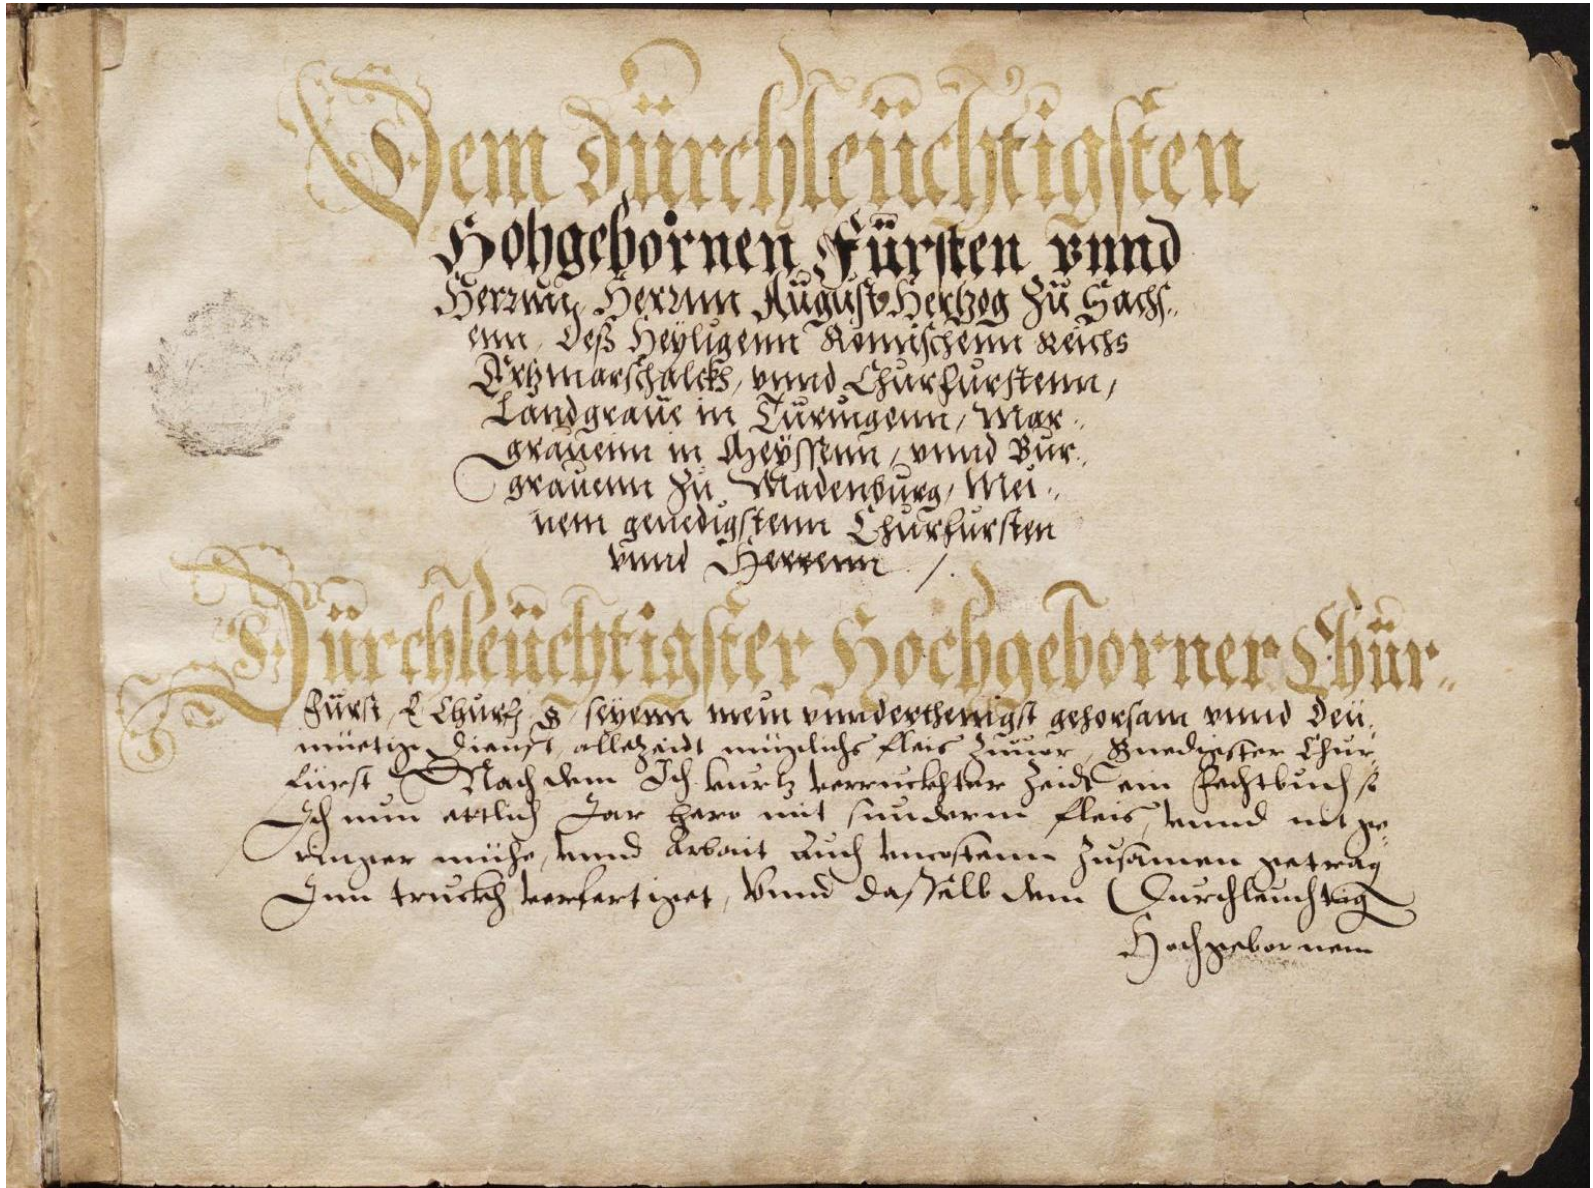 Dem dürchleüchtigsten
Hohgebornen Fürsten vnnd
Herrnn, Herrnn Augusto Hertzog Zü Sachs-
enn, Deß Heyligenn Romischenn Reichs
Ertzmarschalckh, vnnd Churfurstenn,
Landgraue in Türingenn, Mar-
grauenn in Meÿssenn, vnnd Bur-
grauenn Zu Madenburg, Mei-
nem genedigstenn Churfursten
vnnd Herrenn /.
Dürchleüchtigster Hochgeborner Chür-
Fürst, E Churf. G. seyenn mein vnnderthenigst gehorsam vnnd Deü-
müetig Dienst, allezeidt müglichs fleis Zuuor, Gnedigster Chur-
fürst Nach dem Ich kurtz verruckhter Zeidt ein Fechtbuch so
Ich nun ettlich Jar hero mit sunderm fleis, vnnd nit ge-
ringer mühe, vnnd Arbait auch vncostenn Zusamen getrag
Inn truckh verfertiget, Vnnd dasselb dem Durchleuchtig
Hochgebornem